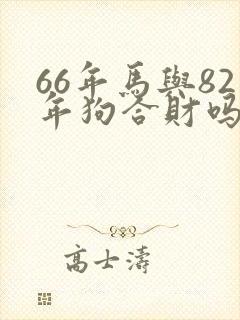 66年馬與82
年狗合財吗
高士濤